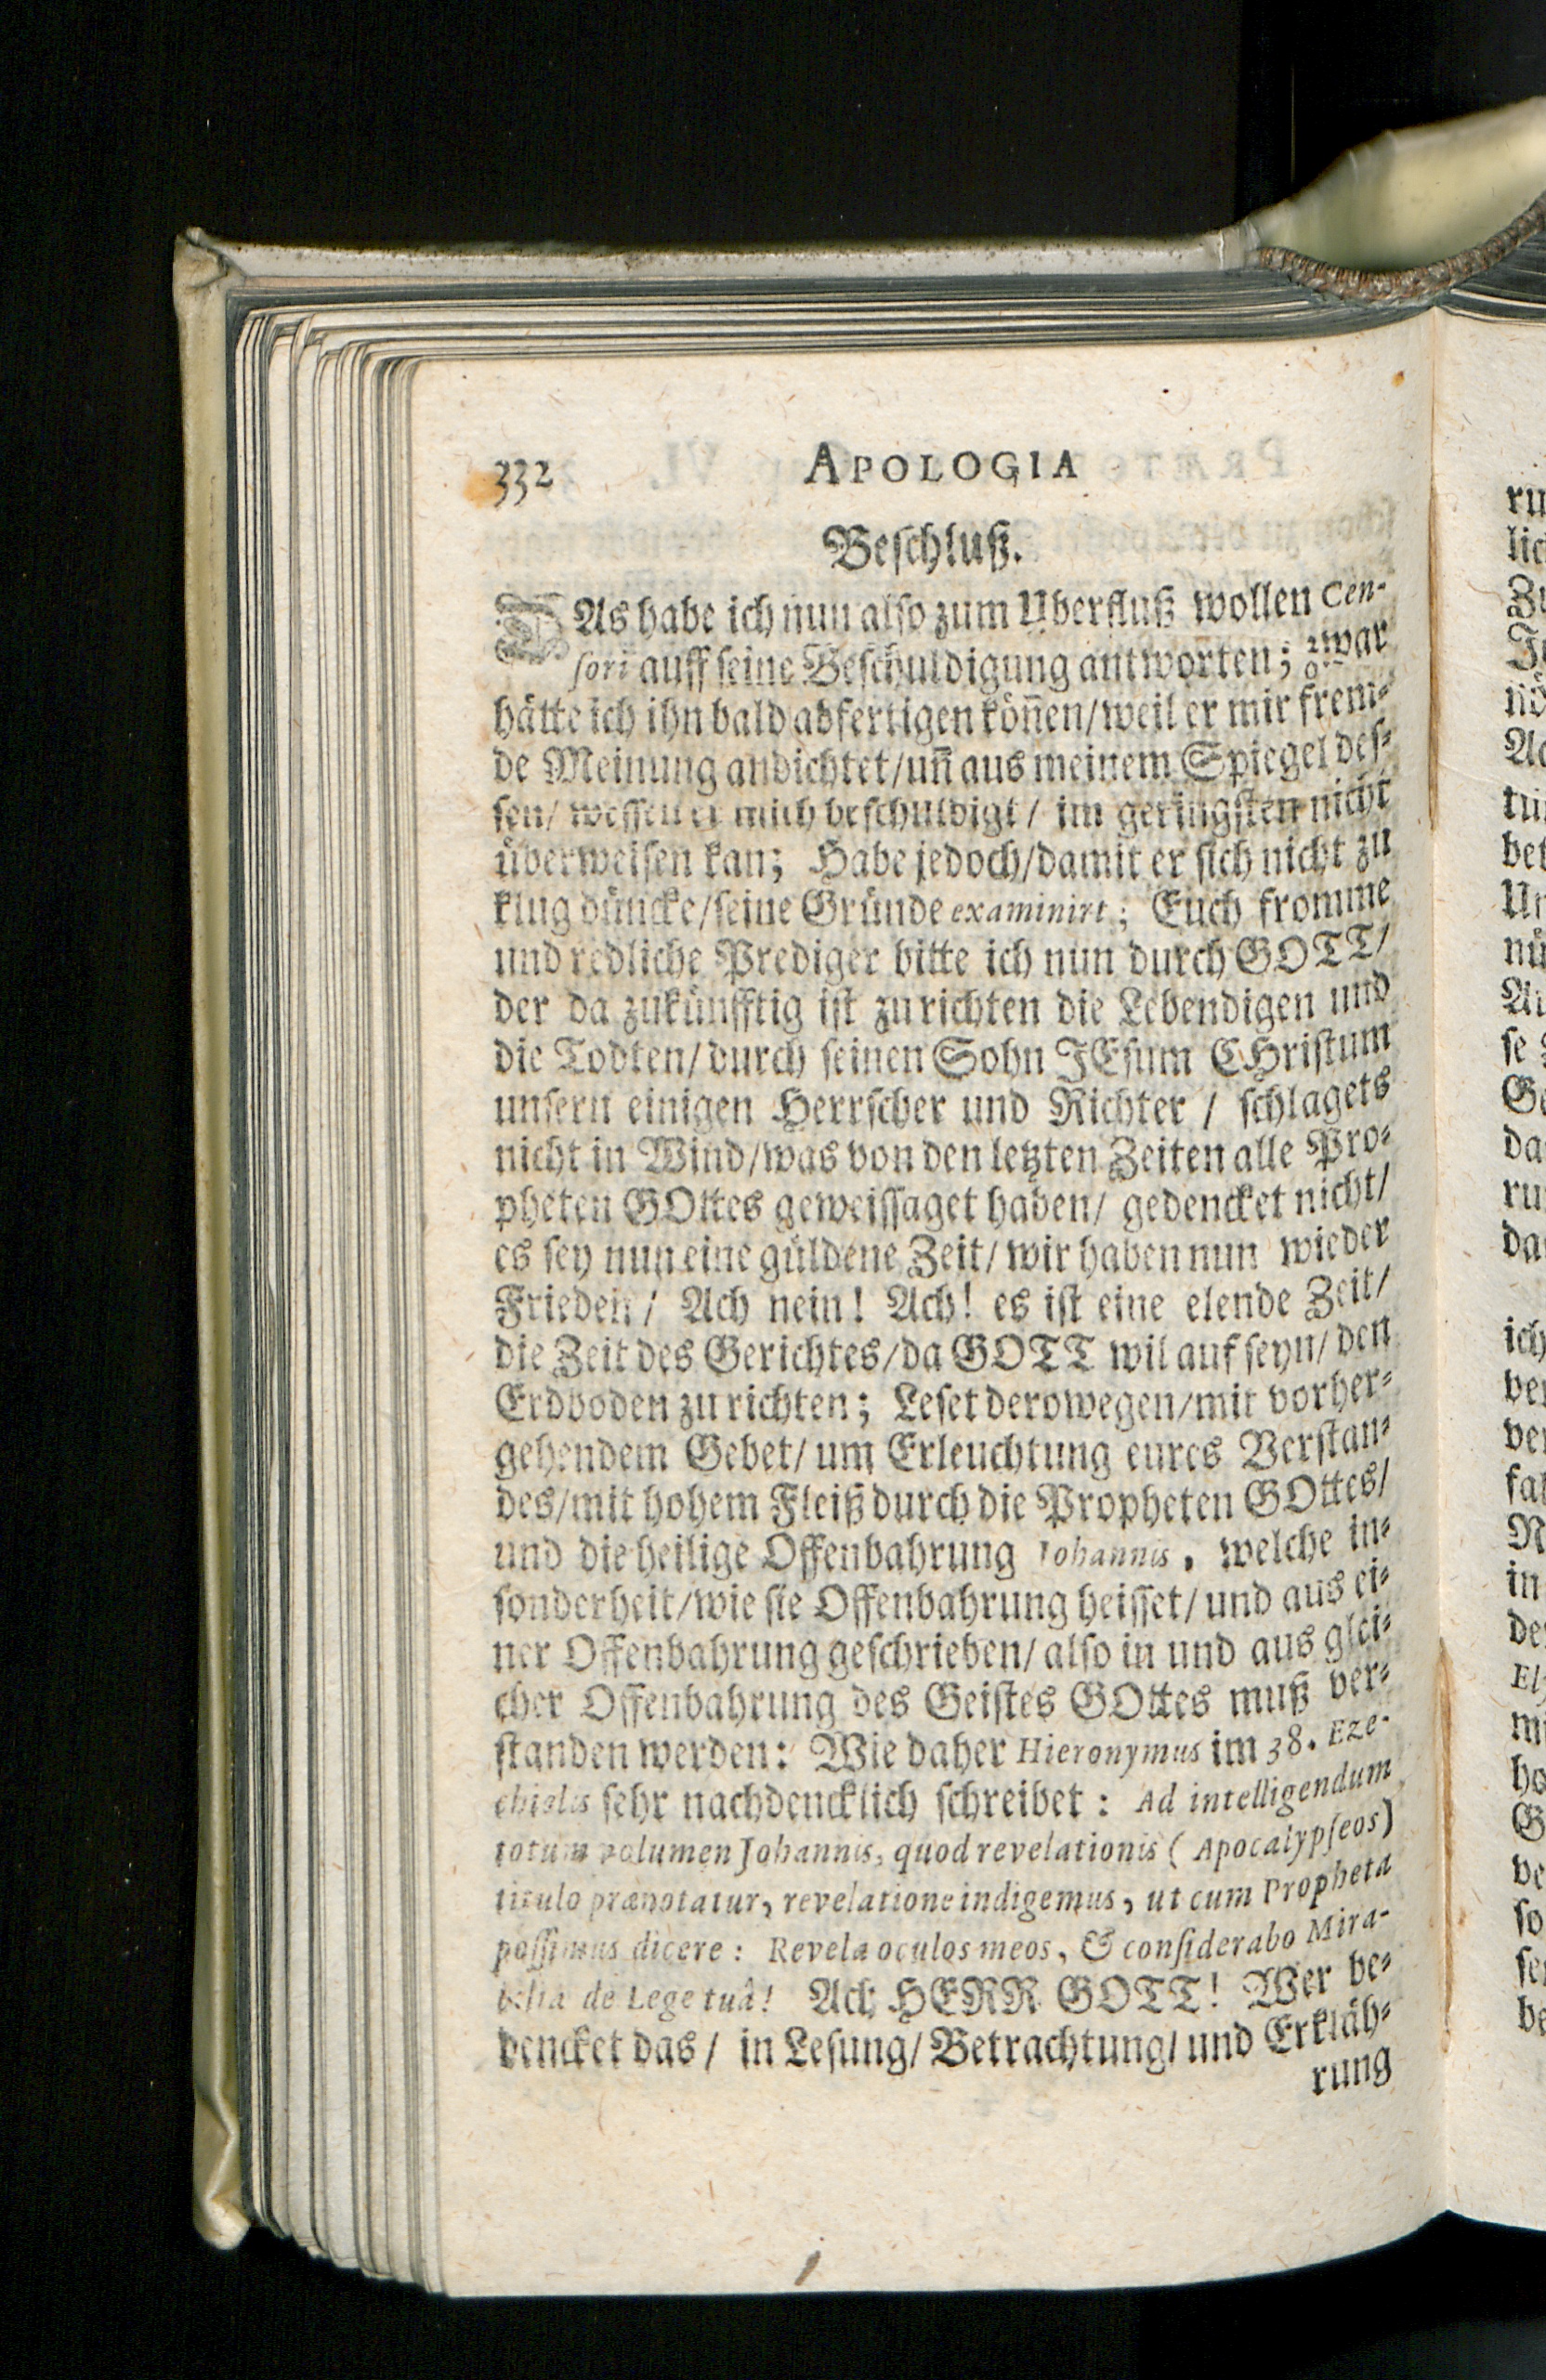 332 APOLOGIA
Beschluß.
DAs habe ich nun also zum Uberfluß wollen Cen-
sori auff seine Beschuldigung antworten; zwar
hätte ich ihn bald abfertigen köñen/weil er mir frem-
de Meinung andichtet/uñ aus meinem Spiegel des-
sen/ wessen er mich beschuldigt/ im geringsten nicht
überweisen kan; Habe jedoch/damit er sich nicht zu
klug düncke/seine Gründe examinirt; Euch fromme
und redliche Prediger bitte ich nun durch GOTT/
der da zukünfftig ist zu richten die Lebendigen und
die Todten/durch seinen Sohn JEsum CHristum
unsern einigen Herrscher und Richter / schlagets
nicht in Wind/was von den letzten Zeiten alle Pro-
pheten GOttes geweissaget haben/ gedencket nicht/
es sey nun eine güldene Zeit/ wir haben nun wieder
Frieden/ Ach nein! Ach! es ist eine elende Zeit/
die Zeit des Gerichtes/da GOTT wil auf seyn/ den
Erdboden zu richten; Leset derowegen/mit vorher-
gehendem Gebet/ um Erleuchtung eures Verstan-
des/mit hohem Fleiß durch die Propheten GOttes/
und die heilige Offenbahrung Johannis, welche in-
sonderheit/wie sie Offenbahrung heisset/ und aus ei-
ner Offenbahrung geschrieben/ also in und aus glei-
cher Offenbahrung des Geistes GOttes muß ver-
standen werden: Wie daher Hieronymus im 38. Eze-
chielis sehr nachdencklich schreibet: Ad intelligendum
totum volumen Johannis, quod revelationis (Apocalypseos)
titulo prænotatur, revelatione indigemus, ut cum Propheta
possimus dicere: Revela oculos meos, & considerabo Mira-
bilia de Lege tuâ! Ach HERR GOTT! Wer be-
dencket das/ in Lesung/ Betrachtung/ und Erkläh-
rung